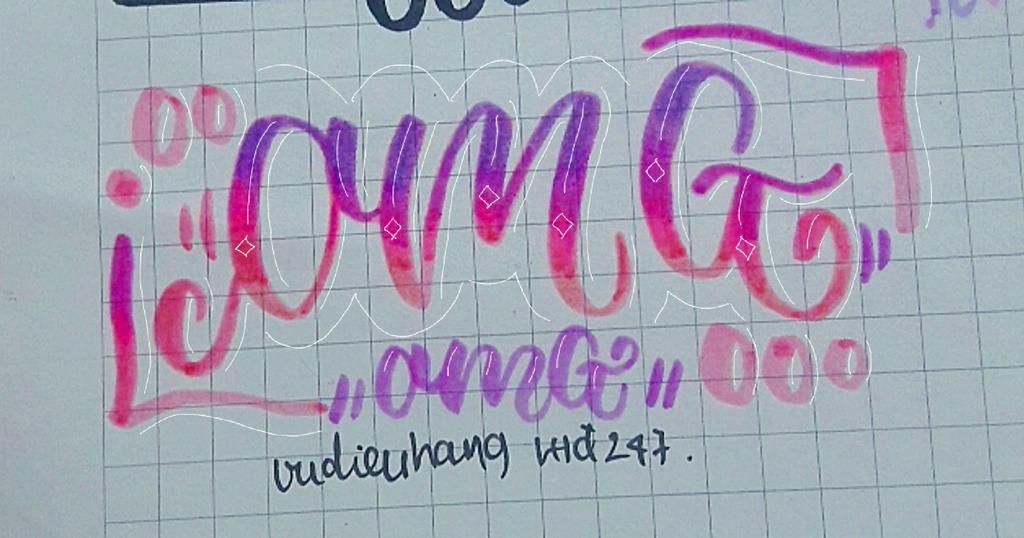 OMG
"OMG"
vudieuhang wtđ 247.